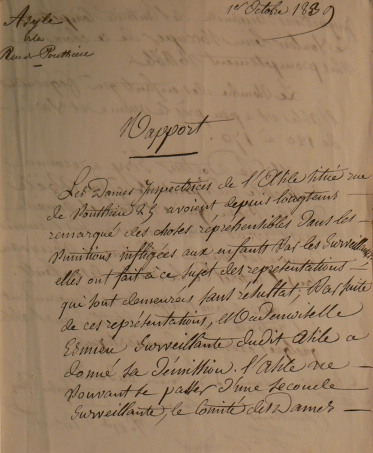 Asyle
de la
Rue de Ponthieu
1er Octobre 1830
Rapport
Les Dames Inspectrices de l'Asile située rue
de Ponthieu avoient depuis longtems
remarqué des choses répréhensibles dans les
punitions infligées aux enfants par les Surveillantes
elles ont fait à ce sujet des représentations
qui sont demeurées sans résultat, par suite
de ces représentations, Mademoiselle
Surveillante dudit Asile a
donné sa démission. l'Asile ne
pouvant se passer d'une seconde
Surveillante, le Comité des Dames